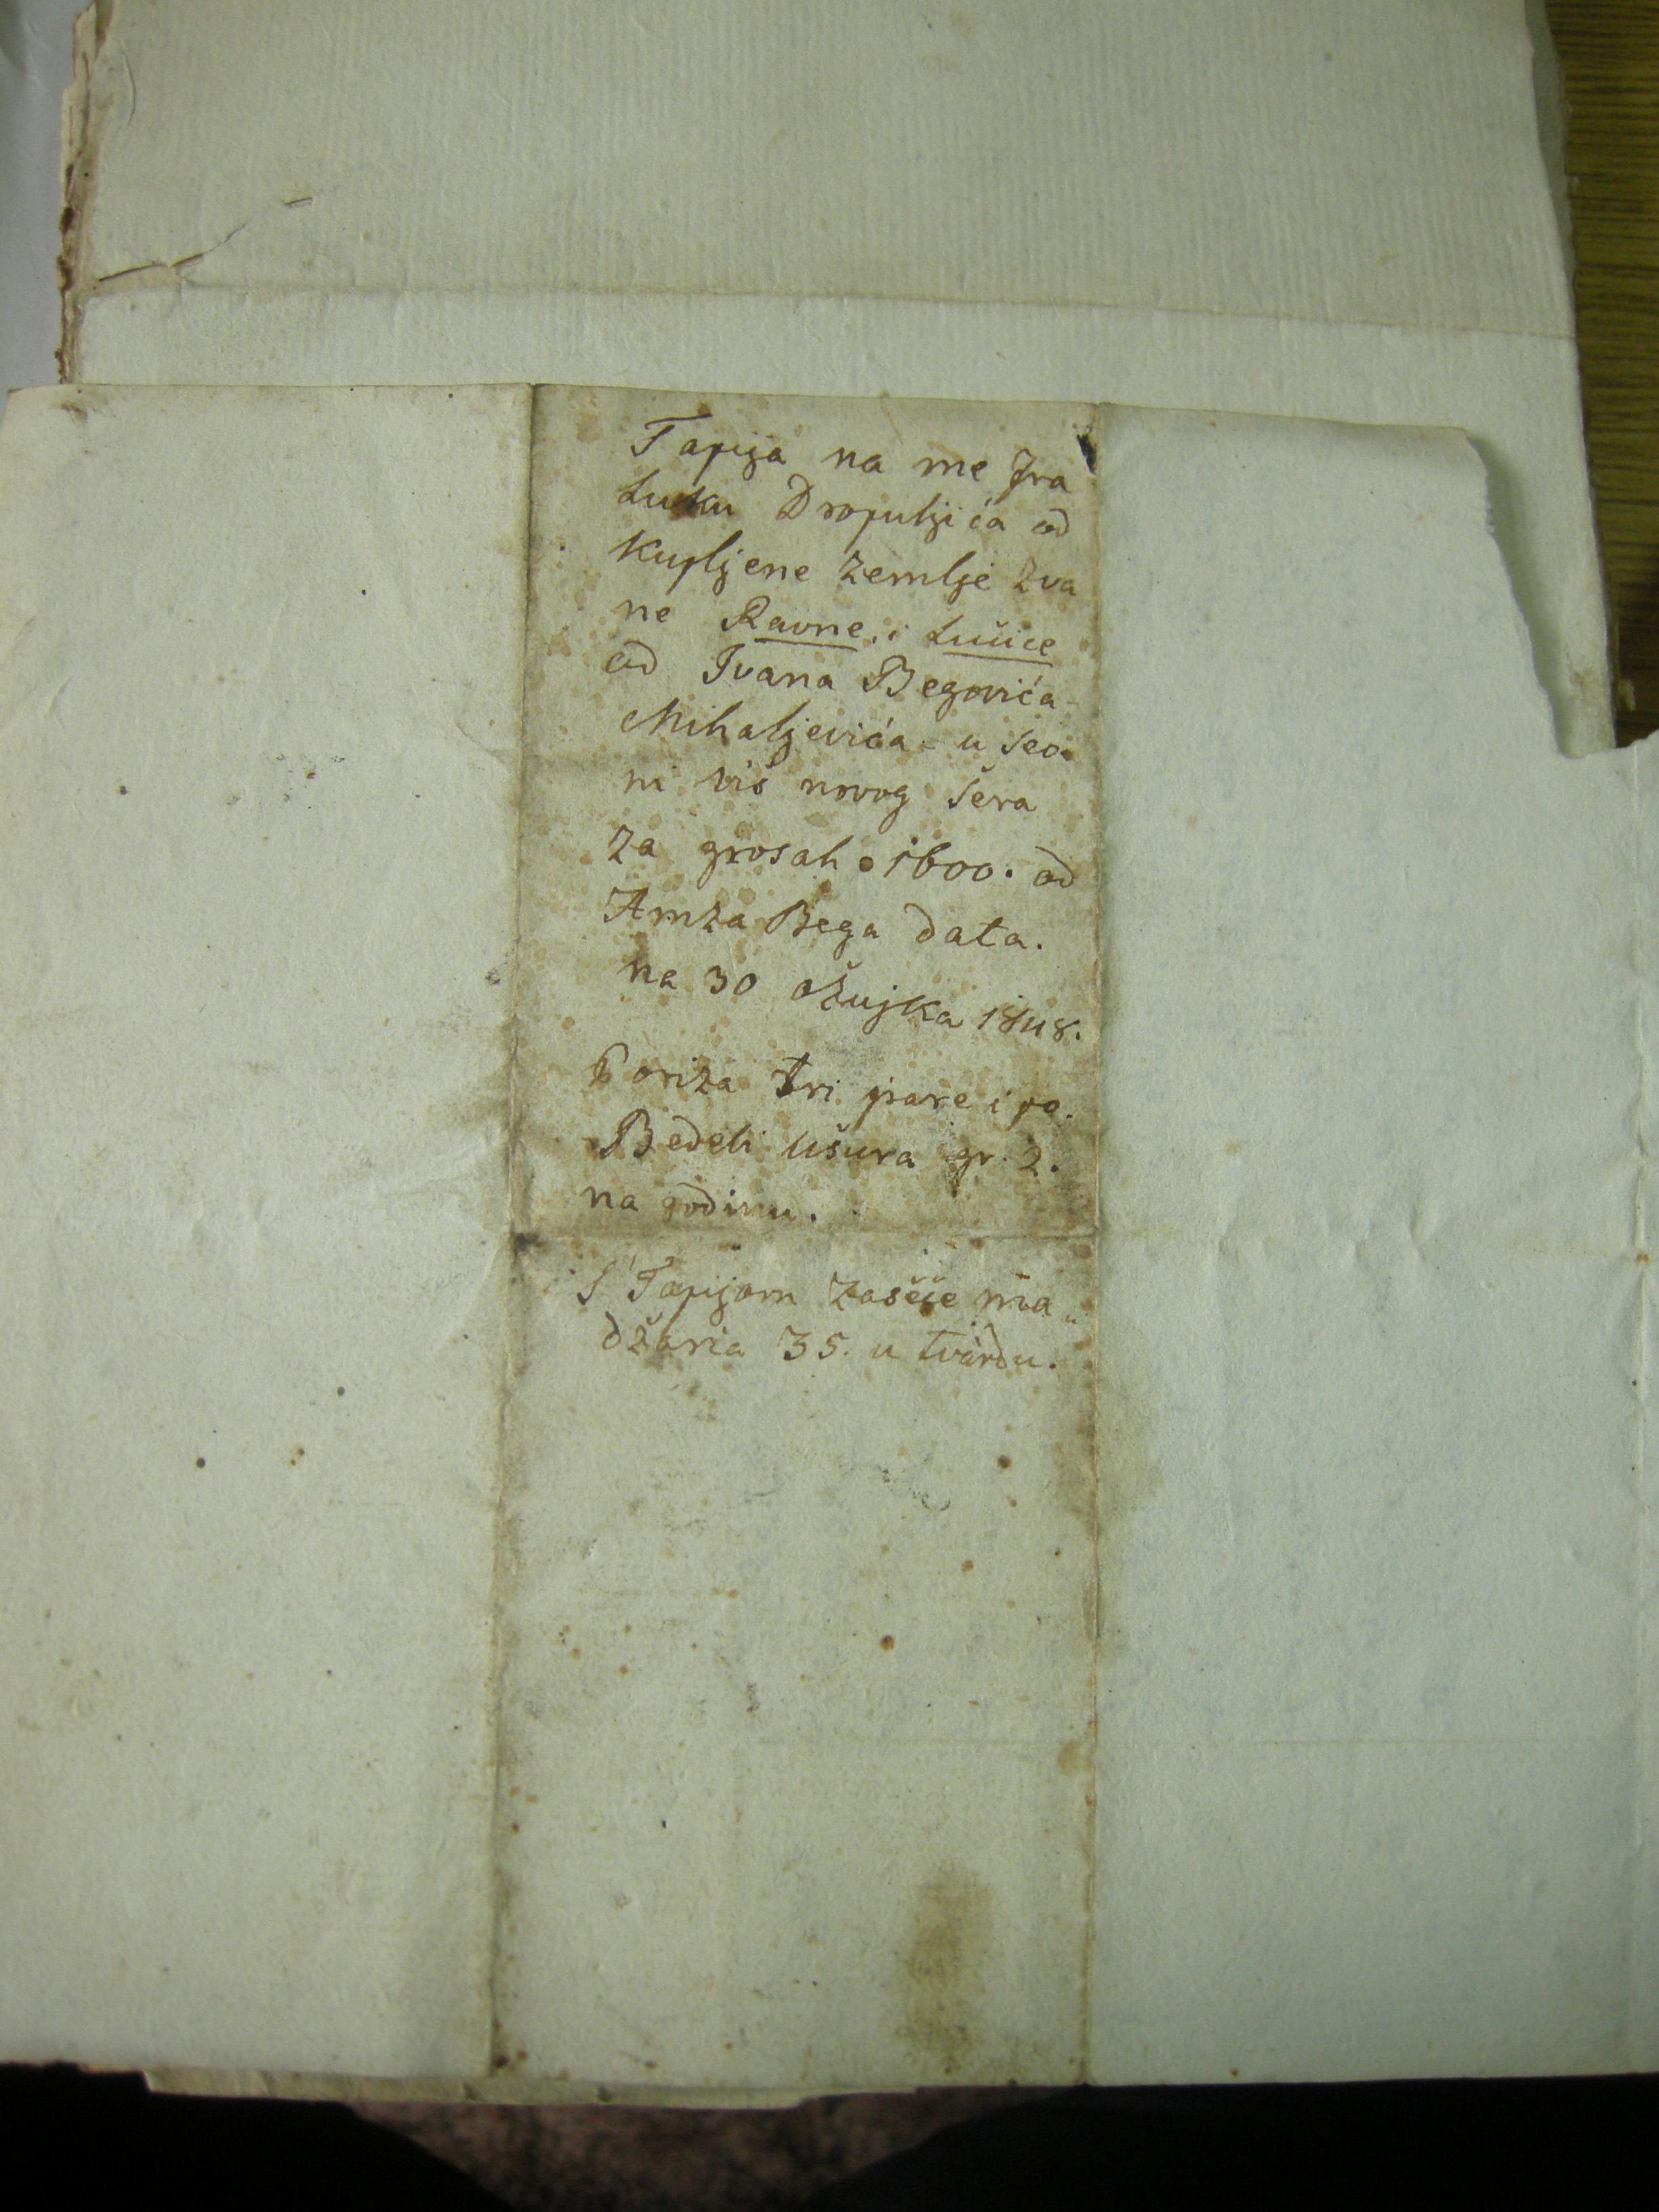 Tapija na me fra
Luku Dropuljića od
Kupljene zemlje zva
ne Ravne, i Lučice
od Ivana Begovića
Mihaljevića - u Seo-
ni viš novog šera
za grosah 1600. od
Amza Bega data.
na 30 ožujka 1848.
Poriza tri pare i po.
Bedeli ušura gr. 2.
na godinu.
S' Tapijom zaseče ma„
džaria 35. u tvàrdu.